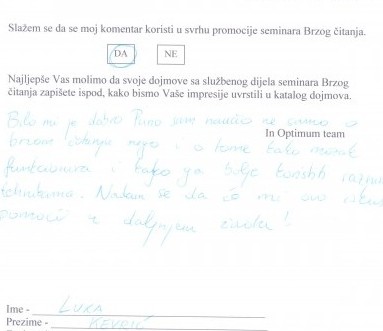 Slažem se da se moj komentar koristi u svrhu promocije seminara Brzog čitanja.
DA NE
Najljepše Vas molimo da svoje dojmove sa službenog dijela seminara Brzog
čitanja zapišete ispod, kako bismo Vaše impresije uvrstili u katalog dojmova.
Bilo mi je dobro Puno sam naučio ne samo o
In Optimum team
brzom čitanju nego i o tome kako mozak
funkcionira i kako ga bolje koristiti razna
tehnikama. Nadam se da će mi ovo
pomoći u daljnjem životu!
Ime - LUKA
Prezime - KEVRIĆ